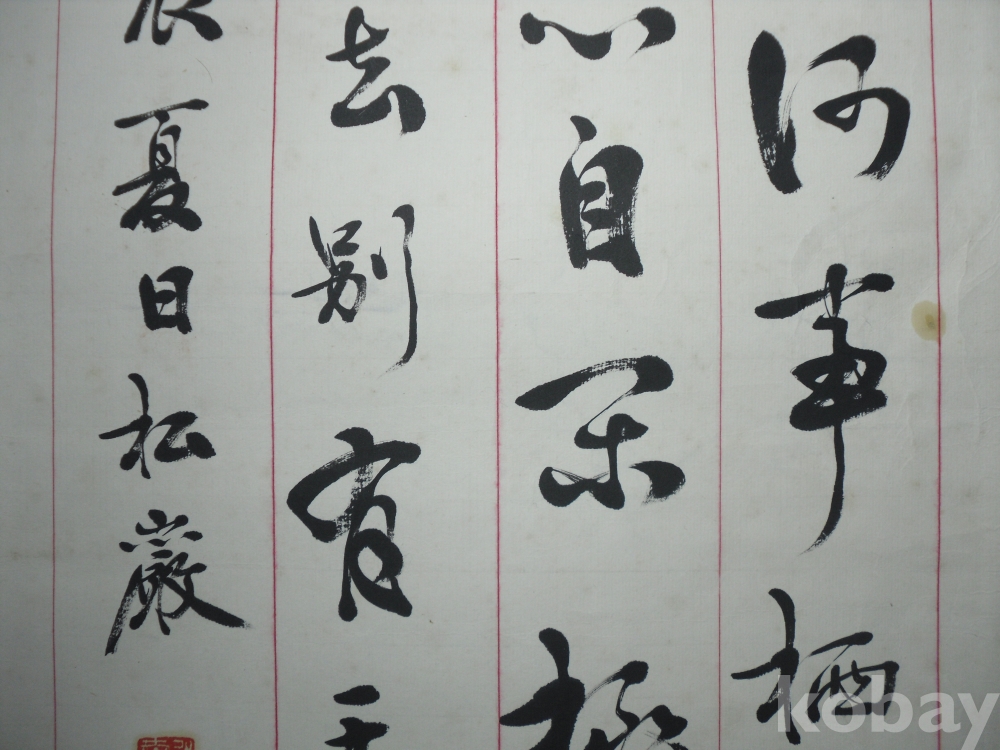 何事栖
心自閑桃
去別有天
辰夏日松巖
kobay